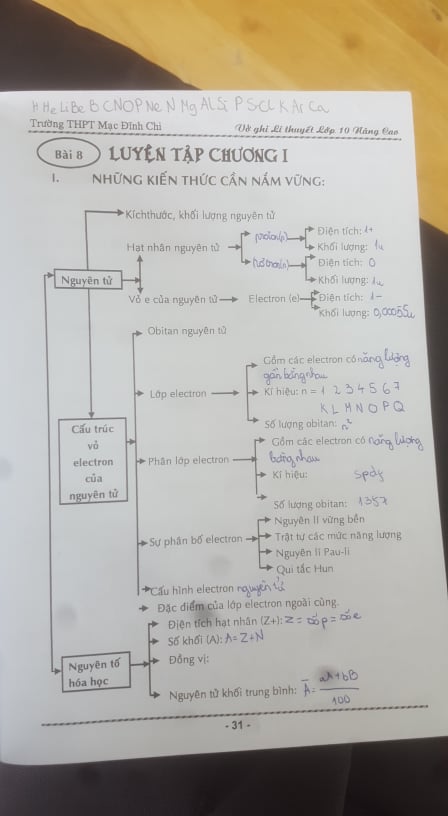 H He Li Be B C N O P Ne N Mg Al Si P S Cl K Ar Ca
Trường THPT Mạc Đĩnh Chi
Vở ghi Lí thuyết Lớp 10 Nâng Cao
Bài 8
LUYỆN TẬP CHƯƠNG I
I. NHỮNG KIẾN THỨC CẦN NẮM VỮNG:
Kích thước, khối lượng nguyên tử
Hạt nhân nguyên tử
proton(p)
Điện tích: 1+
Khối lượng: 1u
nơtron(n)
Điện tích: 0
Khối lượng: 1u
Nguyên tử
Vỏ e của nguyên tử
Electron (e)
Điện tích: 1-
Khối lượng: 0,00055u
Obitan nguyên tử
Lớp electron
Gồm các electron có năng lượng
gần bằng nhau
Kí hiệu: n = 1 2 3 4 5 6 7
K L M N O P Q
Số lượng obitan: n²
Cấu trúc
vỏ
electron
của
nguyên tử
Phân lớp electron
Gồm các electron có năng lượng
bằng nhau
Kí hiệu: spdf
Số lượng obitan: 1357
Sự phân bố electron
Nguyên lí vững bền
Trật tự các mức năng lượng
Nguyên lí Pau-li
Qui tắc Hun
Cấu hình electron nguyên tử
Đặc điểm của lớp electron ngoài cùng.
Nguyên tố
hóa học
Điện tích hạt nhân (Z+): Z = số p = số e
Số khối (A): A = Z + N
Đồng vị:
Nguyên tử khối trung bình: A̅ = aA + bB
100
- 31 -